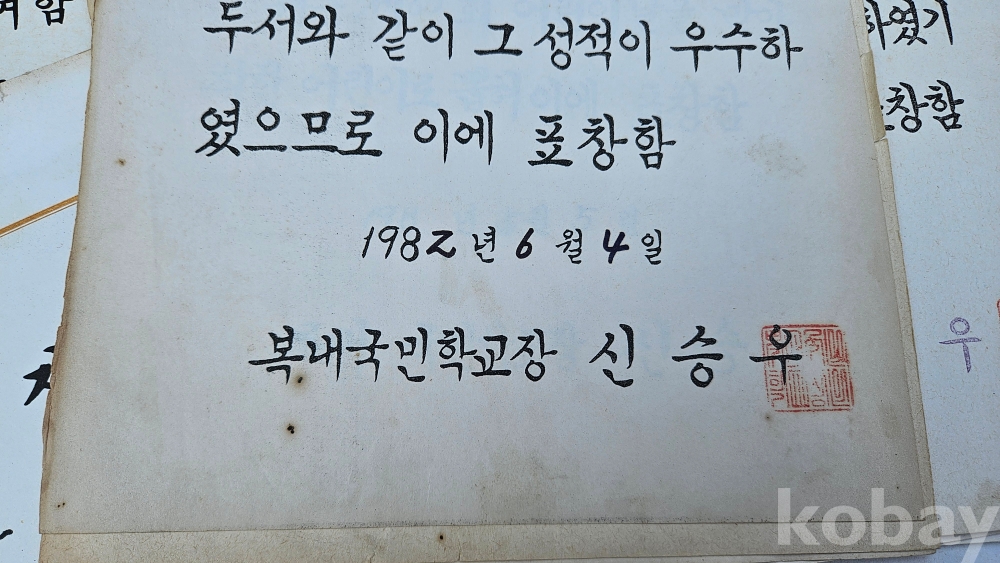 두서와 같이 그 성적이 우수하
였으므로 이에 표창함
1982년 6월 4일
복내국민학교장 신승우
하였기
창함
우
kobay